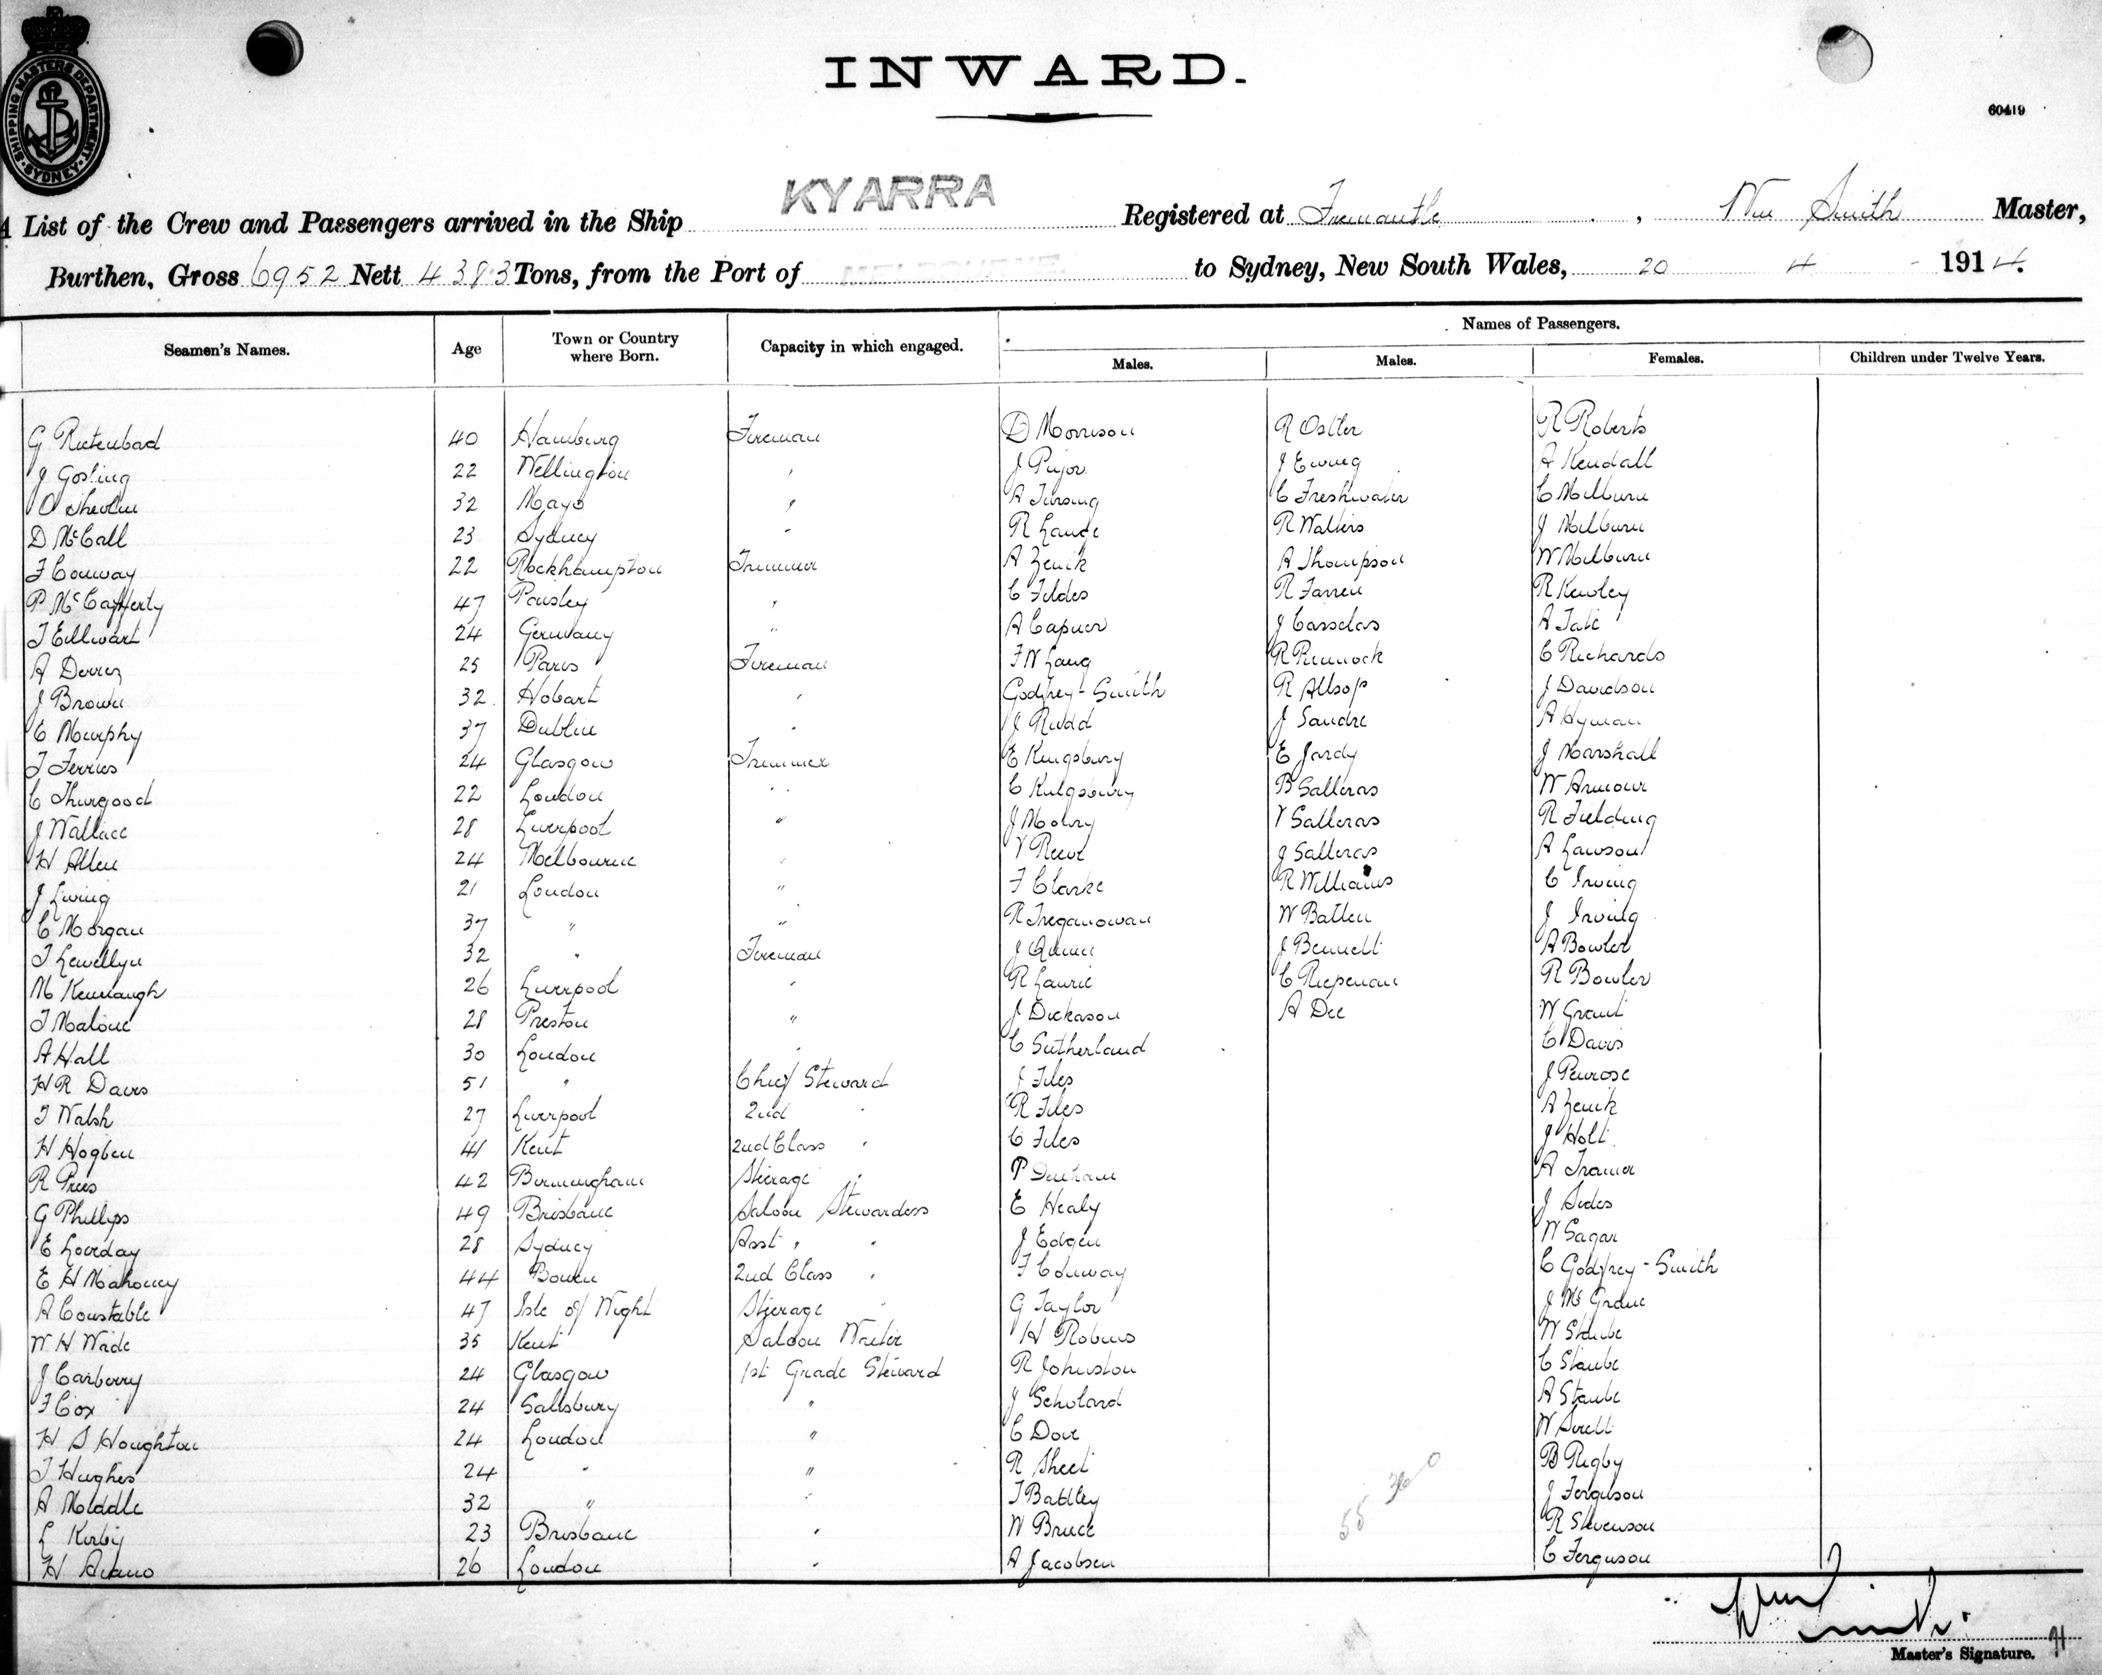 SHIPPING MASTERS DEPARTMENT SYDNEY
INWARD.
60419
A List of the Crew and Passengers arrived in the Ship KYARRA Registered at Fremantle, Wm Smith Master,
Burthen, Gross 6952 Nett 4383 Tons, from the Port of MELBOURNE to Sydney, New South Wales, 20 4 1914.
Names of Passengers.
Seamen's Names. Age Town or Country where Born. Capacity in which engaged. Males. Males. Females. Children under Twelve Years.
G 40 Hamburg Fireman D Morrison R Ostler R Roberts
J Gosling 22 Wellington " J Pujor J Ewing A Kendall
O 32 Mayo " A C Freshwater C Milburn
D McCall 23 Sydney " R Lange R Walters J Milburn
F Conway 22 Rockhampton Trimmer A Zenik A Thompson W Milburn
P McCafferty 47 Paisley " C Fildes R Farren R Kewley
T Ellwart 24 Germany " A Capner J Casselas A Tate
A 25 Paris Fireman F W Lang R Pinnock C Richards
J Brown 32 Hobart " Godfrey-Smith R Allsop J Davidson
C Murphy 37 Dublin " J Rudd J Sandre A Hyman
T Ferries 24 Glasgow Trimmer E Kingsbury E Jardy J Marshall
C Thurgood 22 London " C Kingsbury B Salleras W Armour
J Wallace 28 Liverpool " J V Salleras R Fielding
H Allen 24 Melbourne " V Reeve J Salleras A Lawson
J 21 London " F Clarke R Williams C Irving
C Morgan 37 " " R Treganowan W Batten J Irving
T Lewellyn 32 " Fireman J Quinn J Bennett A Bowler
M 26 Liverpool " R Laurie C R Bowler
T Malone 28 Preston " J Dickason A Dee W Grant
A Hall 30 London " C Sutherland C Davis
H R Davis 51 " Chief Steward J Files J Penrose
T Walsh 27 Liverpool 2nd " R Files A Zenik
H Hogben 41 Kent 2nd Class " C Files J Holt
R Prees 42 Birmingham Steerage " P Denham A
G Phillips 49 Brisbane Saloon Stewardess E Healy J
E 28 Sydney Asst " " J Edgen W Sagar
E H Mahoney 44 Bowen 2nd Class " F Conway C Godfrey-Smith
A Constable 47 Isle of Wight Steerage " G Taylor J
W H Wade 35 Kent Saloon Waiter H Robins W Staube
J Carberry 24 Glasgow 1st Grade Steward R Johnston C Staube
F Cox 24 Salisbury " J Scholard A Staube
H S Houghton 24 London " C Dove W
T Hughes 24 " " R Sheet B Rigby
A Middle 32 " " T Badley J Ferguson
L Kirby 23 Brisbane " W Bruce R Stevenson
H 26 London " A Jacobsen C Ferguson
55 36 0
Wm Smith
Master's Signature.